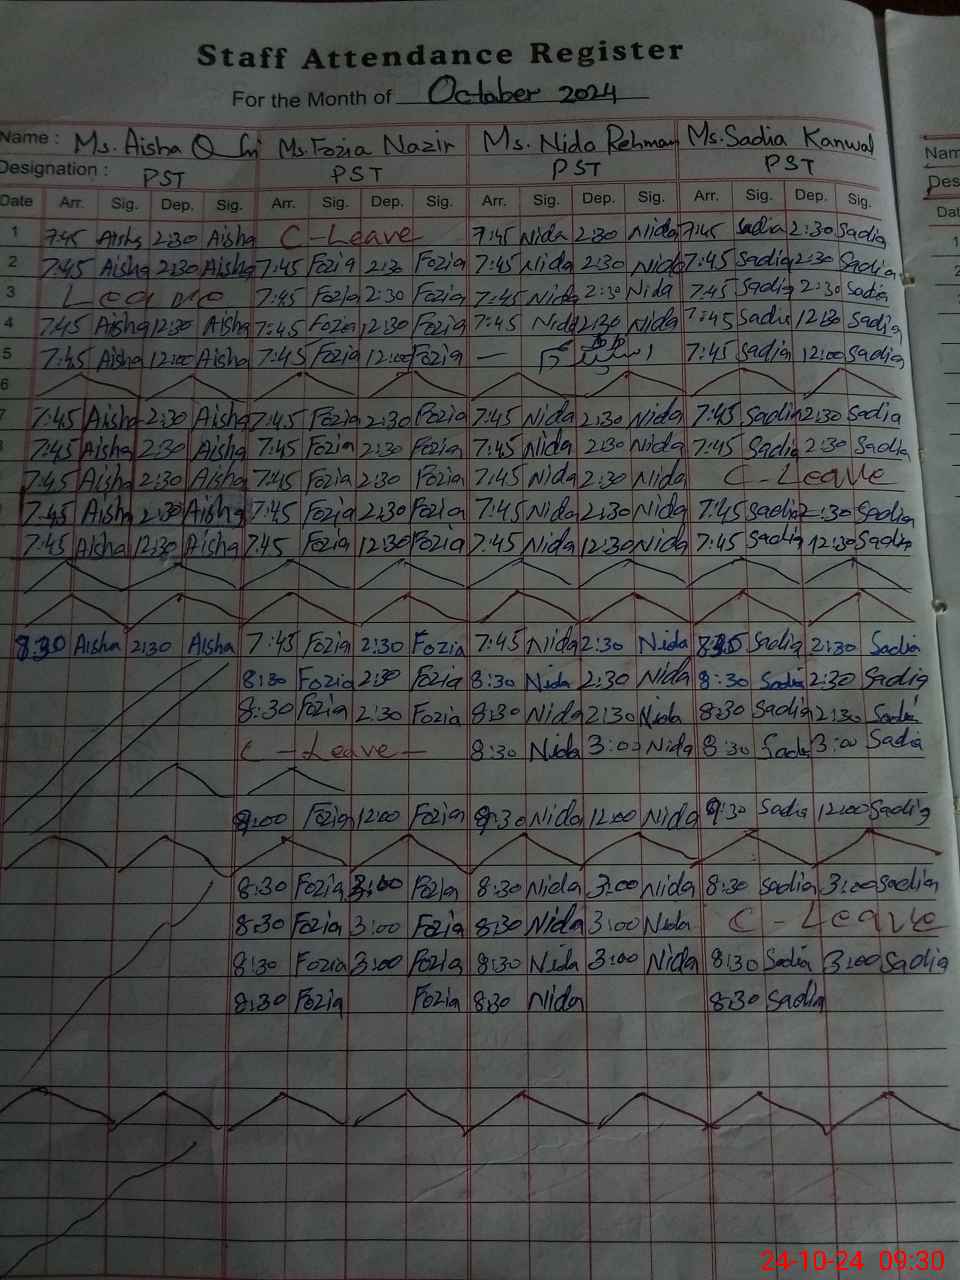 Staff Attendance Register
For the Month of October 2024
Name : Ms. Aisha Ms. Fozia Nazir Ms. Nida Rehman Ms. Sadia Kanwal Nam
Designation : PST PST PST PST Des
Date Arr. Sig. Dep. Sig. Arr. Sig. Dep. Sig. Arr. Sig. Dep. Sig. Arr. Sig. Dep. Sig. Dat
1 7:45 Aisha 2:30 Aisha C-Leave 7:45 Nida 2:30 Nida 7:45 Sadia 2:30 Sadia
2 7:45 Aisha 2:30 Aisha 7:45 Fozia 2:3 Fozia 7:45 Nida 2:30 Nida 7:45 Sadia 2:30 Sadia
3 Leave 7:45 Fozia 2:30 Fozia 7:45 Nida 2:30 Nida 7:45 Sadia 2:30 Sadia
4 7:45 Aisha 12:30 Aisha 7:45 Fozia 12:30 Fozia 7:45 Nida 12:30 Nida 7:45 Sadia 12:30 Sadia
5 7:45 Aisha 12:00 Aisha 7:45 Fozia 12:00 Fozia 7:45 Sadia 12:00 Sadia
6
7 7:45 Aisha 2:30 Aisha 7:45 Fozia 2:30 Fozia 7:45 Nida 2:30 Nida 7:45 Sadia 2:30 Sadia
7:45 Aisha 2:30 Aisha 7:45 Fozia 2:30 Fozia 7:45 Nida 2:30 Nida 7:45 Sadia 2:30 Sadia
7:45 Aisha 2:30 Aisha 7:45 Fozia 2:30 Fozia 7:45 Nida 2:30 Nida C-Leave
7:45 Aisha 2:30 Aisha 7:45 Fozia 2:30 Fozia 7:45 Nida 2:30 Nida 7:45 Sadia 2:30 Sadia
7:45 Aisha 12:30 Aisha 7:45 Fozia 12:30 Fozia 7:45 Nida 12:30 Nida 7:45 Sadia 12:30 Sadia
8:30 Aisha 2:30 Aisha 7:45 Fozia 2:30 Fozia 7:45 Nida 2:30 Nida Sadia 2:30 Sadia
8:30 Fozia 2:30 Fozia 8:30 Nida 2:30 Nida 8:30 Sadia 2:30 Sadia
8:30 Fozia 2:30 Fozia 8:30 Nida 2:30 Nida 8:30 Sadia 2:30 Sadia
C - Leave - 8:30 Nida 3:00 Nida 8:30 Sadia 3:00 Sadia
9:00 Fozia 12:00 Fozia 9:30 Nida 12:00 Nida 9:30 Sadia 12:00 Sadia
8:30 Fozia 3:00 Fozia 8:30 Nida 3:00 Nida 8:30 Sadia 3:00 Sadia
8:30 Fozia 3:00 Fozia 8:30 Nida 3:00 Nida C - Leave
8:30 Fozia 3:00 Fozia 8:30 Nida 3:00 Nida 8:30 Sadia 3:00 Sadia
8:30 Fozia Fozia 8:30 Nida 8:30 Sadia
24-10-24 09:30